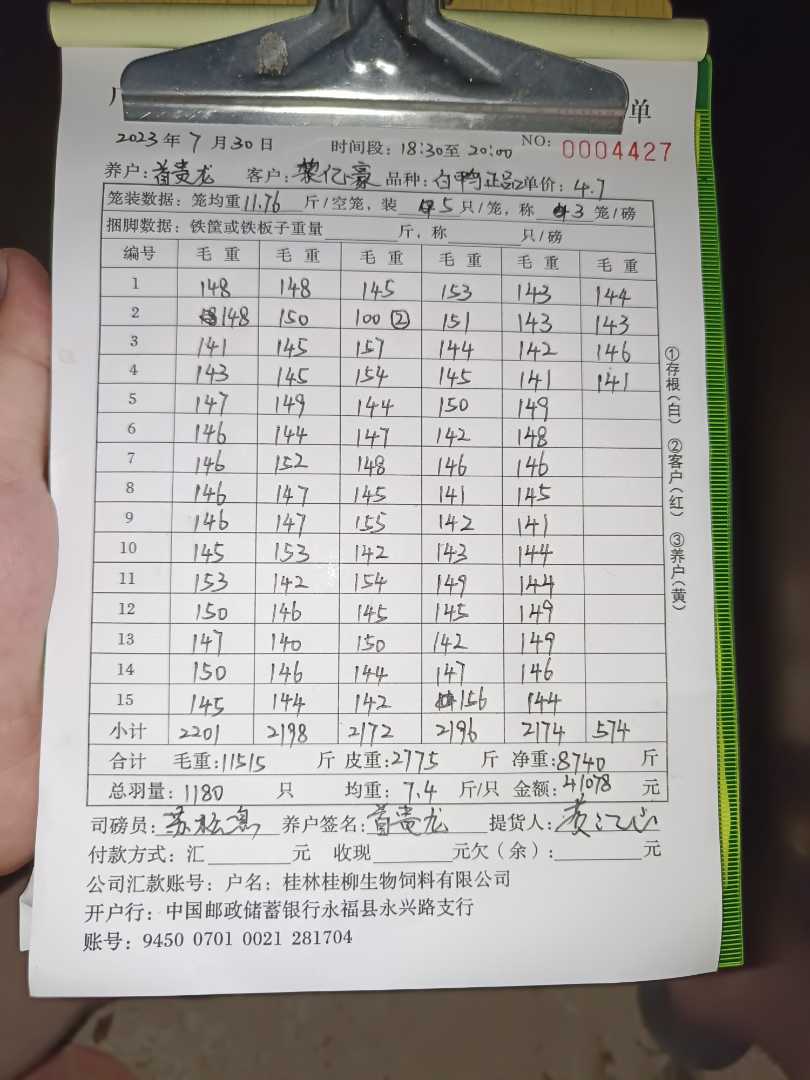 单
2023年7月30日 时间段：18:30至20:00 NO: 0004427
养户：首贵龙 客户：黎亿豪 品种：白鸭正品 单价：4.7
笼装数据：笼均重11.76斤/空笼，装5只/笼，称3笼/磅
捆脚数据：铁筐或铁板子重量 斤，称 只/磅
编号 毛重 毛重 毛重 毛重 毛重 毛重
1 148 148 145 153 143 144
2 148 150 100② 151 143 143
3 141 145 157 144 142 146
4 143 145 154 145 141 141
5 147 149 144 150 149
6 146 144 147 142 148
7 146 152 148 146 146
8 146 147 145 141 145
9 146 147 155 142 141
10 145 153 142 143 144
11 153 142 154 149 144
12 150 146 145 145 149
13 147 140 150 142 149
14 150 146 144 147 146
15 145 144 142 156 144
小计 2201 2198 2172 2196 2174 574
合计 毛重：11515斤 皮重：2775斤 净重：8740斤
总羽量：1180只 均重：7.4斤/只 金额：41078元
司磅员： 养户签名：首贵龙 提货人：
付款方式：汇 元 收现 元欠（余）： 元
公司汇款账号：户名：桂林桂柳生物饲料有限公司
开户行：中国邮政储蓄银行永福县永兴路支行
账号：9450 0701 0021 281704
①存根（白） ②客户（红） ③养户（黄）